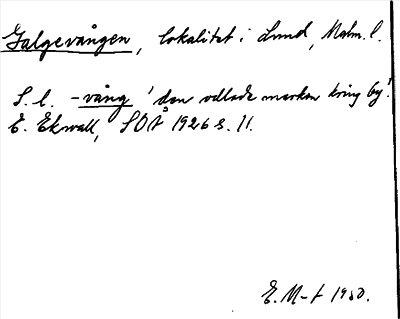 Galgevången, lokalitet i Lund, Malm. l.
S. l. -vång 'den odlade marken kring by'.
E. Ekwall, SOÅ 1926 s. 11.
E. M-t 1980.